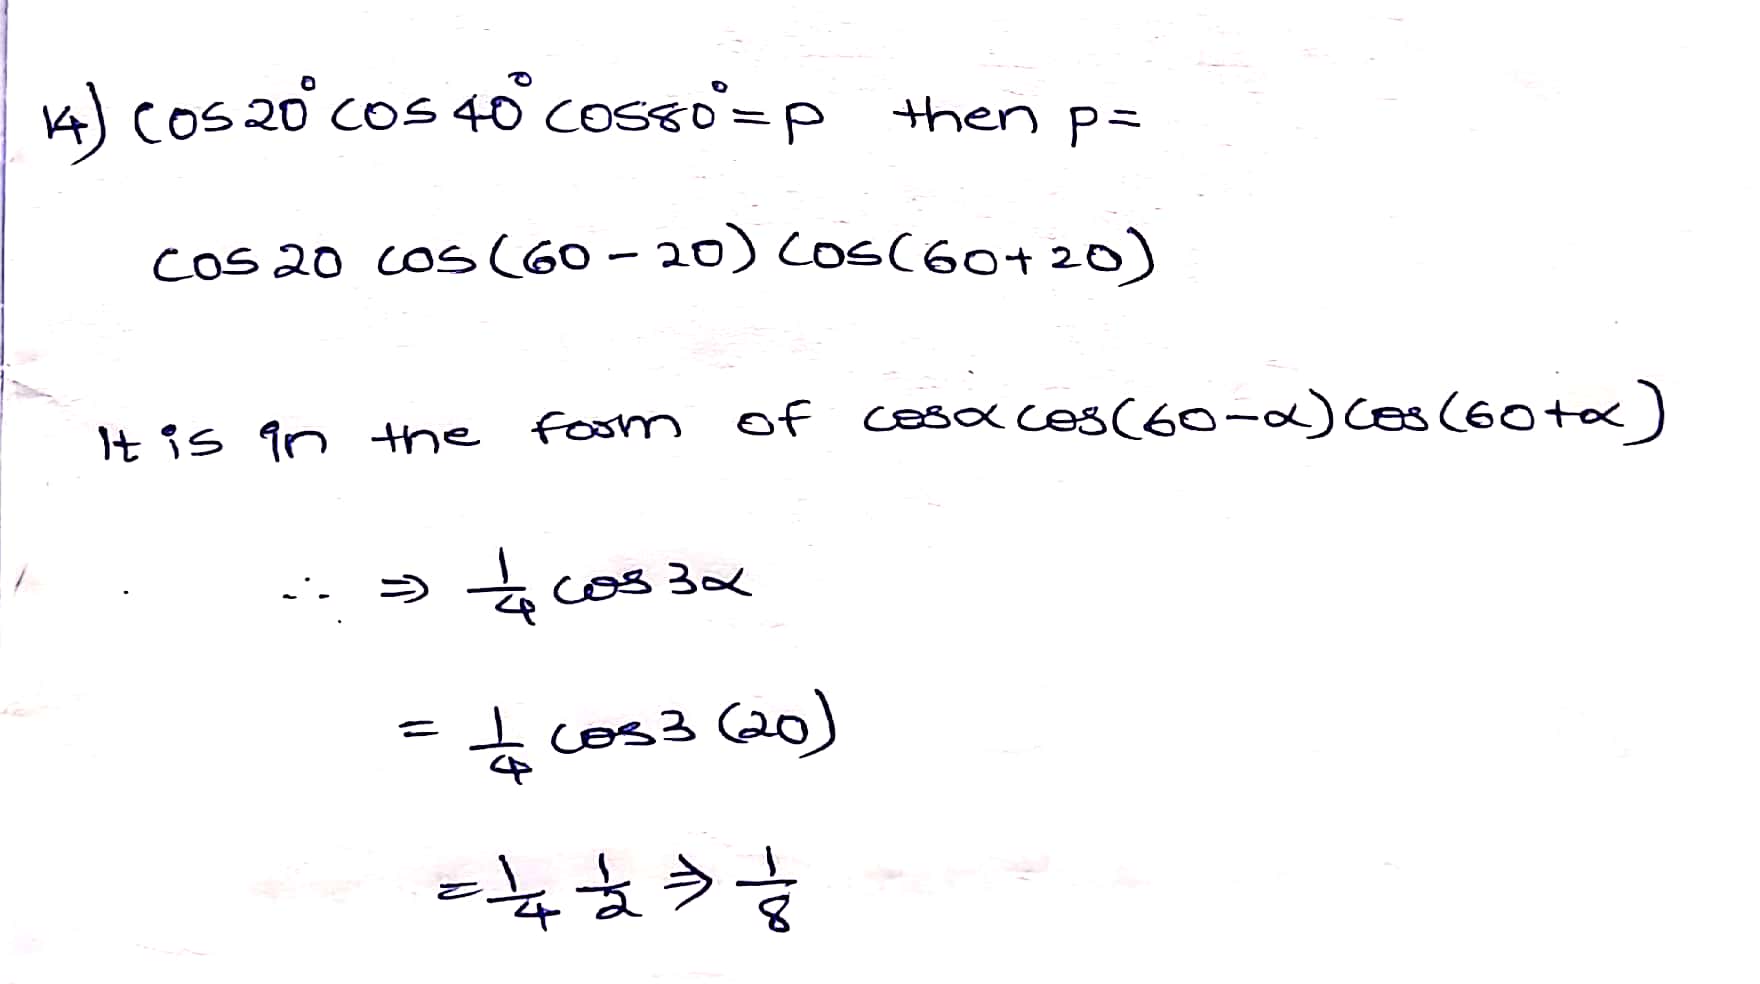 14) cos20° cos 40° cos80° = p then p=
cos 20 cos (60 - 20) cos(60+20)
It is in the form of cosα cos(60-α) cos(60+α)
∴ ⇒ 1/4 cos 3α
= 1/4 cos3 (20)
= 1/4 1/2 ⇒ 1/8